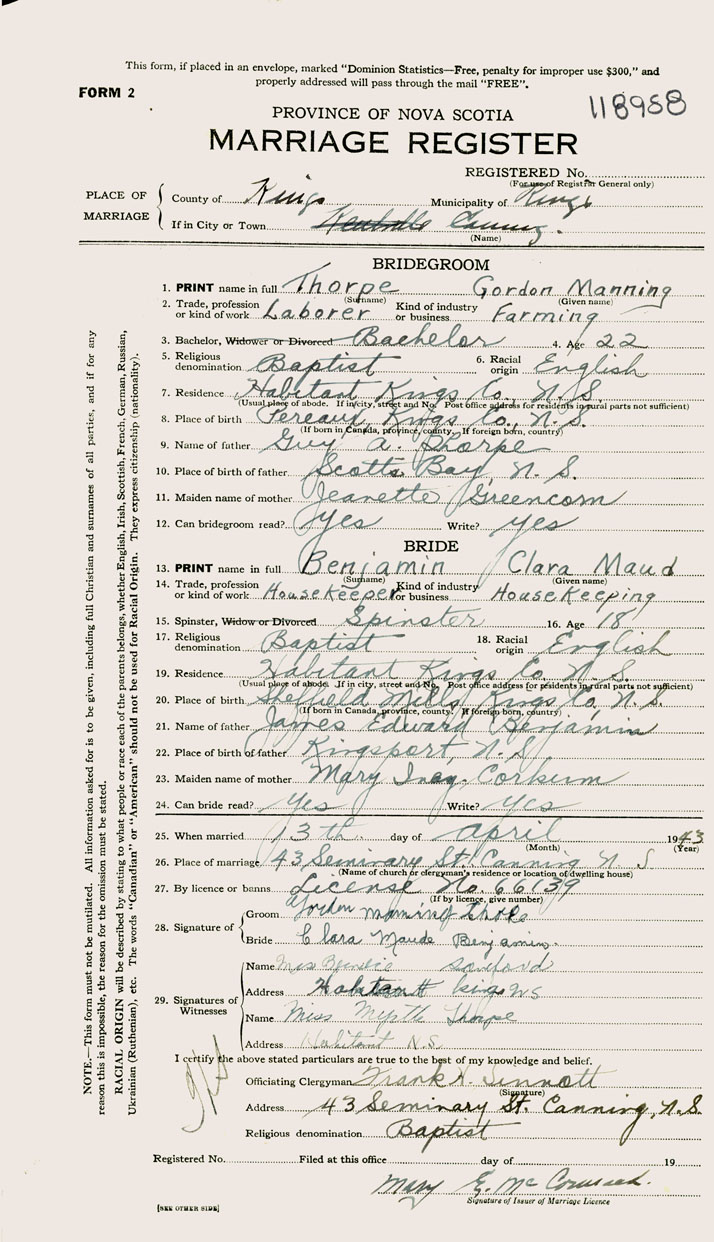 This form, if placed in an envelope, marked "Dominion Statistics—Free, penalty for improper use $300," and
properly addressed will pass through the mail "FREE".
FORM 2
118958
PROVINCE OF NOVA SCOTIA
MARRIAGE REGISTER
REGISTERED No.
(For use of Registrar General only)
PLACE OF MARRIAGE
County of Kings Municipality of Kings
If in City or Town Kentville Canning.
(Name)
BRIDEGROOM
1. PRINT name in full Thorpe Gordon Manning
(Surname) (Given name)
2. Trade, profession or kind of work Laborer Kind of industry or business Farming
3. Bachelor, Widower or Divorced Bachelor 4. Age 22
5. Religious denomination Baptist 6. Racial origin English
7. Residence Habitant Kings Co. N.S.
(Usual place of abode. If in city, street and No. Post office address for residents in rural parts not sufficient)
8. Place of birth Pereaud, Kings Co., N.S.
(If born in Canada, province, county. If foreign born, country)
9. Name of father Guy A. Thorpe
10. Place of birth of father Scotts Bay, N.S.
11. Maiden name of mother Jeanette Greencorn
12. Can bridegroom read? Yes Write? Yes
BRIDE
13. PRINT name in full Benjamin Clara Maud
(Surname) (Given name)
14. Trade, profession or kind of work HouseKeeper Kind of industry or business HouseKeeping
15. Spinster, Widow or Divorced Spinster 16. Age 18
17. Religious denomination Baptist 18. Racial origin English
19. Residence Habitant Kings Co. N.S.
(Usual place of abode. If in city, street and No. Post office address for residents in rural parts not sufficient)
20. Place of birth Sheffield Mills, Kings Co, N.S.
(If born in Canada, province, county. If foreign born, country)
21. Name of father James Edward Benjamin
22. Place of birth of father Kingsport, N.S.
23. Maiden name of mother Mary Inez Corkum
24. Can bride read? Yes Write? Yes
25. When married 13th day of April 1943
(Month) (Year)
26. Place of marriage 43 Seminary St. Canning N S
(Name of church or clergyman's residence or location of dwelling house)
27. By licence or banns License No. 66139
(If by licence, give number)
28. Signature of
Groom Gordon Manning Thorpe
Bride Clara Maude Benjamin
29. Signatures of Witnesses
Name Mrs Sanford
Address Habitant Kings NS
Name Miss Myrtle Thorpe
Address Habitant N.S.
I certify the above stated particulars are true to the best of my knowledge and belief.
Officiating Clergyman Frank H. Sinnott
(Signature)
Address 43 Seminary St. Canning, N.S.
Religious denomination Baptist
Registered No. Filed at this office day of 19
Mary E. McCormack
Signature of Issuer of Marriage Licence
[SEE OTHER SIDE]
NOTE.—This form must not be mutilated. All information asked for is to be given, including full Christian and surnames of all parties, and if for any
reason this is impossible, the reason for the omission must be stated.
RACIAL ORIGIN will be described by stating to what people or race each of the parents belongs, whether English, Irish, Scottish, French, German, Russian,
Ukrainian (Ruthenian), etc. The words "Canadian" or "American" should not be used for Racial Origin. They express citizenship (nationality).